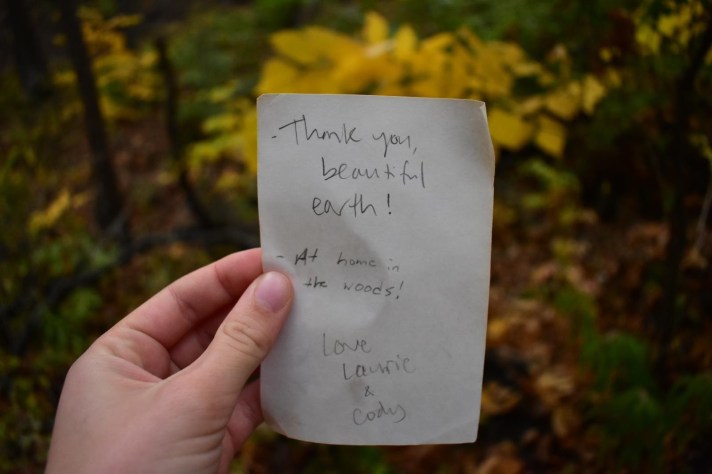 - Thank you,
beautiful
earth!
- At home in
the woods!
Love
Laurie
&
Cody